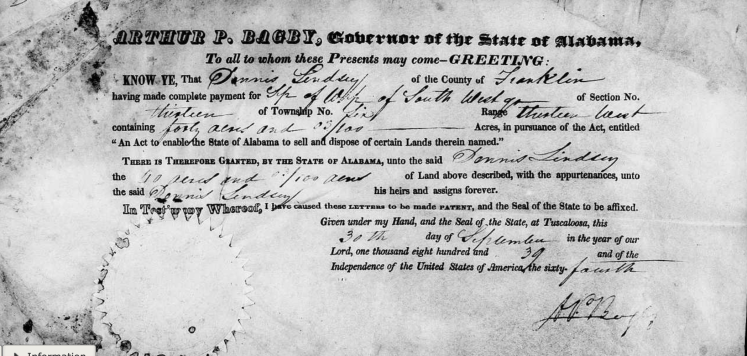 ARTHUR P. BAGBY, Governor of the State of Alabama,
To all to whom these Presents may come—GREETING:
KNOW YE, That Dennis Lindsey of the County of Franklin
having made complete payment for of South West qr of Section No.
thirteen of Township No. Range thirteen West
containing forty acres and /100 Acres, in pursuance of the Act, entitled
"An Act to enable the State of Alabama to sell and dispose of certain Lands therein named."
THERE IS THEREFORE GRANTED, BY THE STATE OF ALABAMA, unto the said Dennis Lindsey
the 40 acres and /100 acres of Land above described, with the appurtenances, unto
the said Dennis Lindsey his heirs and assigns forever.
In Testimony Whereof, I have caused these LETTERS to be MADE PATENT, and the Seal of the State to be affixed.
Given under my Hand, and the Seal of the State, at Tuscaloosa, this
30th day of September in the year of our
Lord, one thousand eight hundred and 39 and of the
Independence of the United States of America, the sixty-fourth
Information